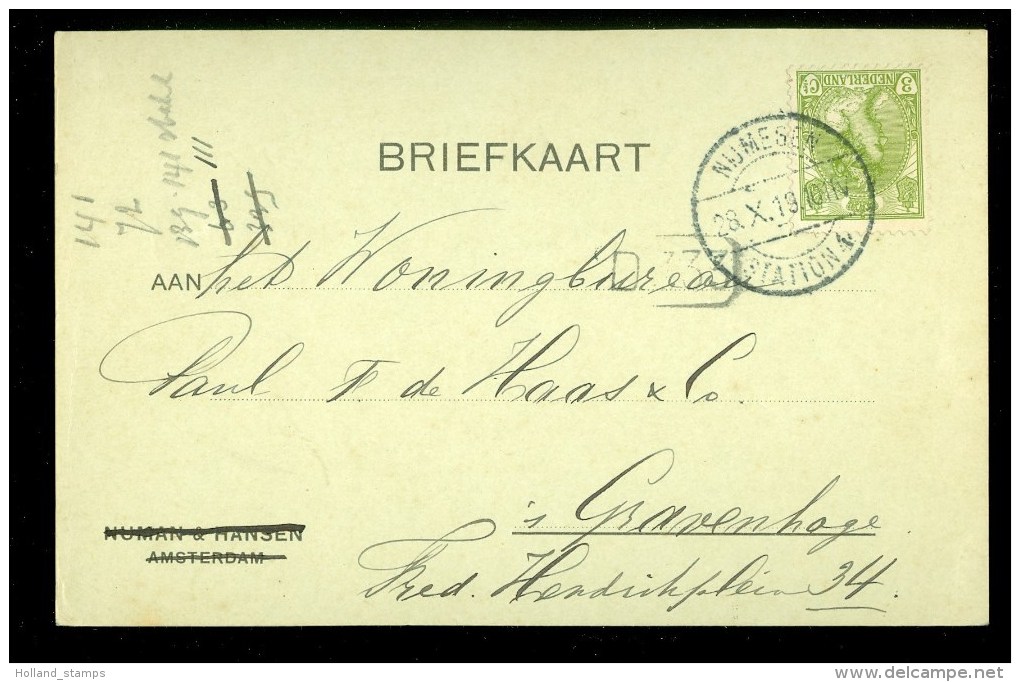 141
72
Bg. 141
111
NEDERLAND
3 Ct
BRIEFKAART
NIJMEGEN
28.X.19
STATION
AAN het Woningbureau
Paul F. de Haas & Co.
's Gravenhage
NUMAN & HANSEN
AMSTERDAM
Fred. Hendrikplein 34.
Holland_stamps
www.delcampe.net